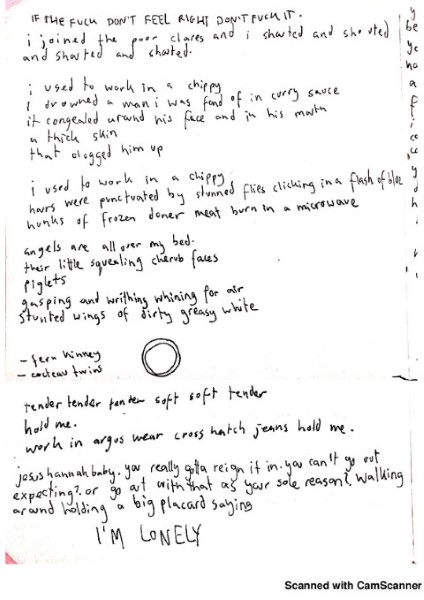 IF THE FUCK DON'T FEEL RIGHT DON'T FUCK IT.
i joined the poor clares and i shouted and shouted
and shouted and shouted.
i used to work in a chippy
I drowned a man i was fond of in curry sauce
it congealed around his face and in his mouth
a thick skin
that clogged him up
i used to work in a chippy
hours were punctuated by stunned flies clicking in a flash of blue
hunks of frozen doner meat burn in a microwave
angels are all over my bed.
their little squealing cherub faces
piglets
gasping and writhing whining for air
stunted wings of dirty greasy white
- fern kinney
- cocteau twins
tender tender tender soft soft tender
hold me.
work in argos wear cross hatch jeans hold me.
jesus hannah baby. you really gotta reign it in. you can't go out
expecting?. or go out with that as your sole reason? walking
around holding a big placard saying
I'M LONELY
Scanned with CamScanner